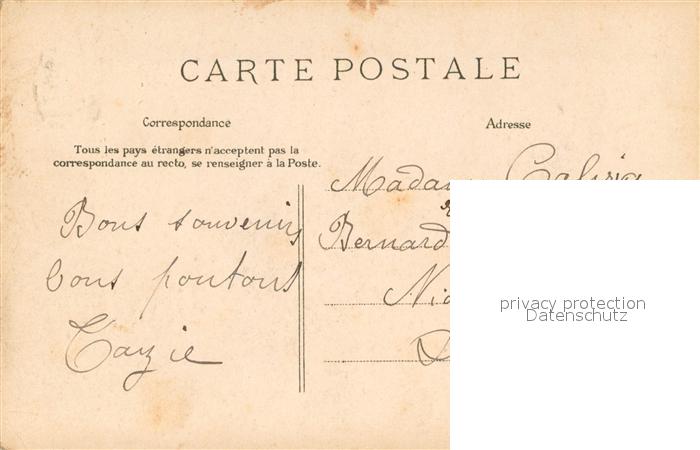 CARTE POSTALE
Correspondance
Adresse
Tous les pays étrangers n'acceptent pas la
correspondance au recto, se renseigner à la Poste.
Bons souvenirs
bons
Madam
Bernard
privacy protection
Datenschutz